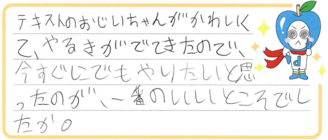 テキストのおじいちゃんがかわいく
て、やるきがでてきたので、
今すぐにでもやりたいと思
ったのが、一番のいいところでし
たか。